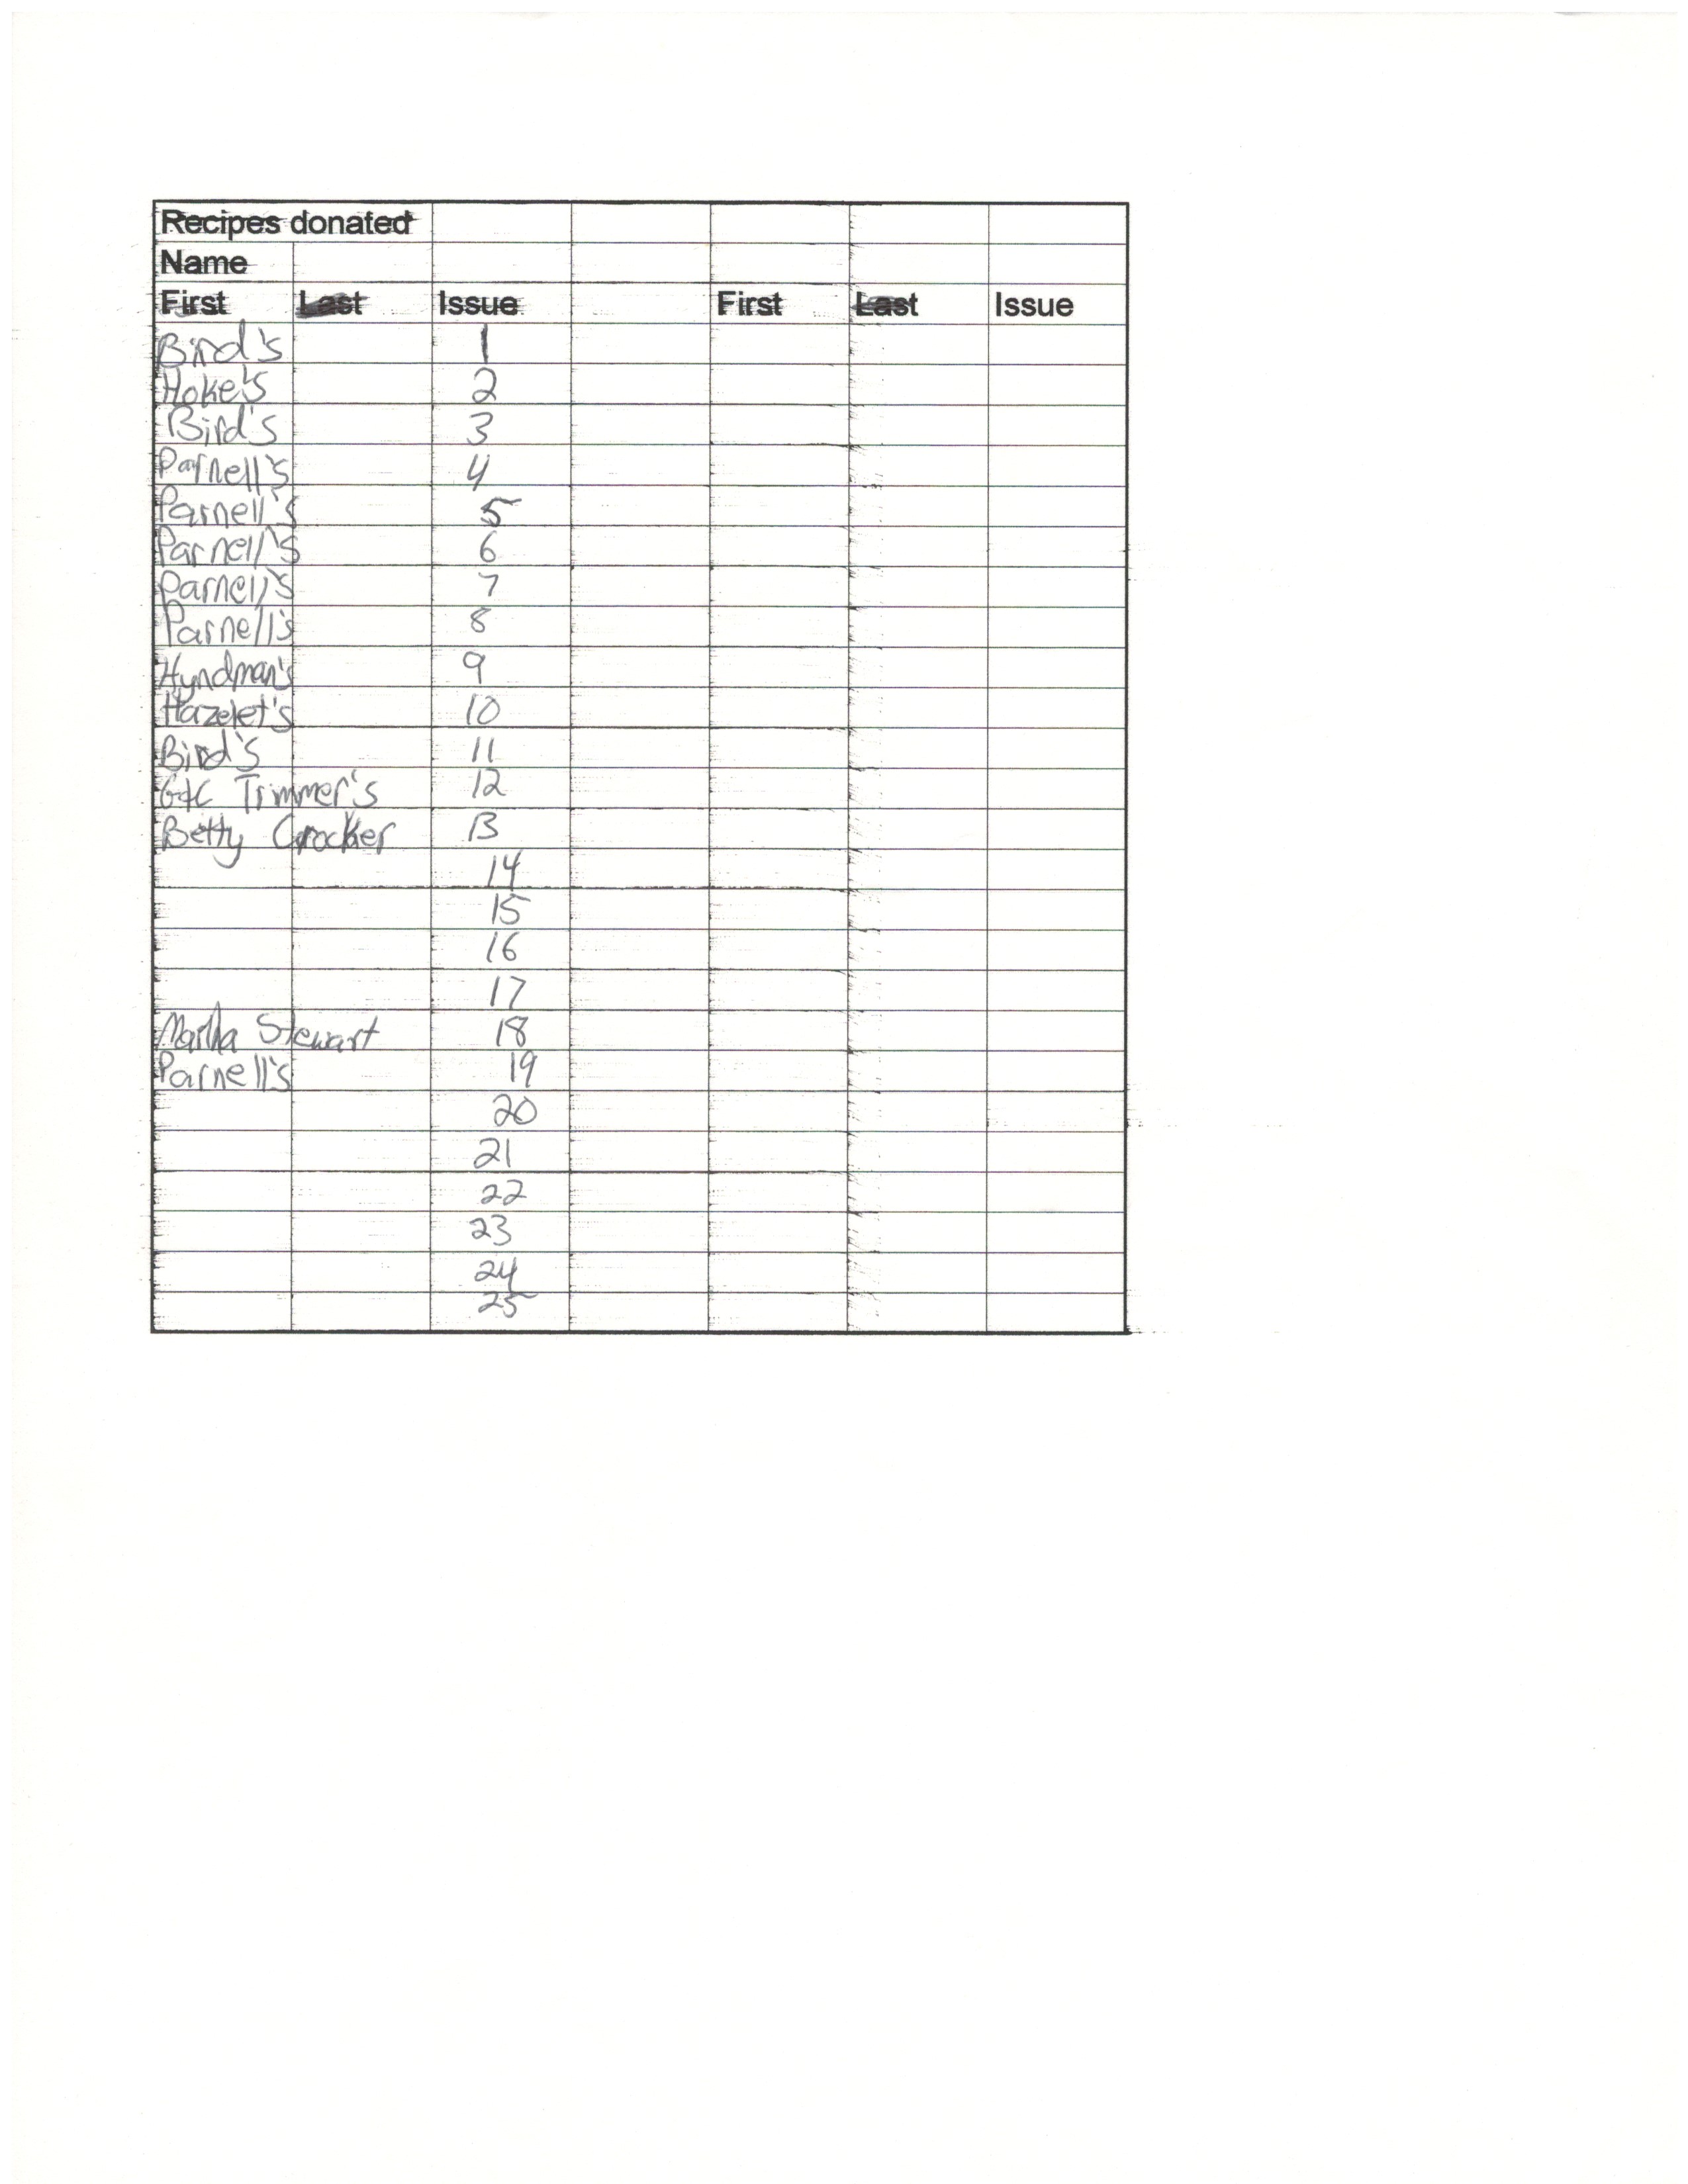 Recipes donated
Name
First Last Issue First Last Issue
Bird's 1
Hoke's 2
Bird's 3
Parnell's 4
Parnell's 5
Parnell's 6
Parnell's 7
Parnell's 8
Hyndman's 9
Hazelet's 10
Bird's 11
G+C Trimmer's 12
Betty Crocker 13
14
15
16
17
Martha Stewart 18
Parnell's 19
20
21
22
23
24
25